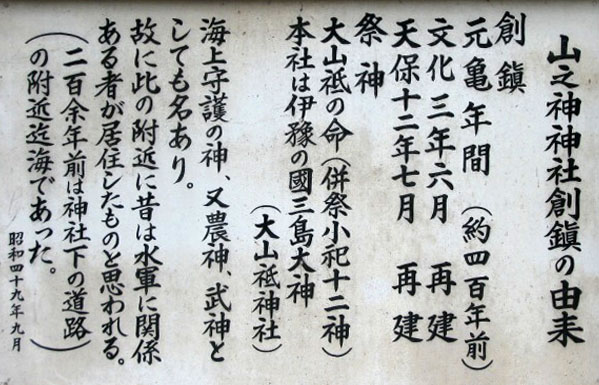 山之神神社創鎮の由来
創鎮
元亀年間(約四百年前)
文化三年六月 再建
天保十二年七月 再建
祭神
大山祇の命(併祭小祀十二神)
本社は伊豫の國三島大神
(大山祗神社)
海上守護の神、又農神、武神と
しても名あり。
故に此の附近に昔は水軍に関係
ある者が居住したものと思われる。
(二百余年前は神社下の道路
の附近迄海であった。)
昭和四十九年九月